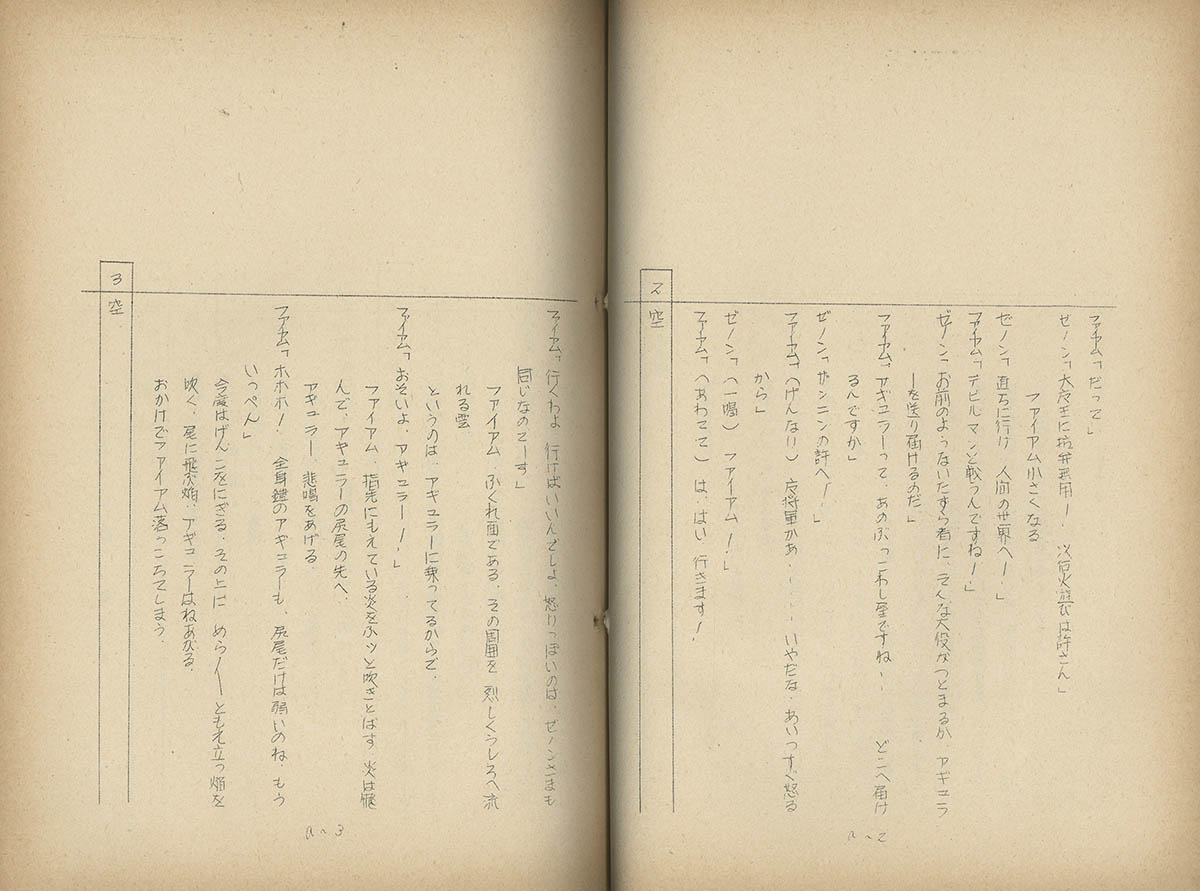 ファイアム「だって」
ゼノン「大反王に抗弁無用！　火石火遊びは許さん」
ファイアム小さくなる
ゼノン「直ちに行け　人間の世界へ！」
ファイアム「デビルマンと戦うんですね！」
ゼノン「お前のようないたずら者に、そんな大役がつとまるか、アギュラ
ーを送り届けるのだ」
ファイアム「アギュラーって、あのぶっこわし屋ですね――　どこへ届け
るんですか」
ゼノン「ザンニンの許へ！」
ファイアム「（げんなり）　反将軍かあ・・・・いやだな、あいつすぐ怒る
から」
ゼノン「（一喝）　ファイアム！」
ファイアム「（あわてて）　は、はい　行きます！
2　空
a～2
ファイアム「行くわよ　行けばいいんでしょ、怒りっぽいのは、ゼノンさまも
同じなのでーす」
ファイアム、ふくれ面である、その周囲を　烈しくうしろへ流
れる雲
というのは、アギュラーに乗ってるからで、
ファイアム「おそいよ、アギュラー！」
ファイアム、指先にもえている炎をふッと吹きとばす　炎は飛
んで、アギュラーの尻尾の先へ、
アギュラー、悲鳴をあげる
ファイアム「ホホホ！　全身鎧のアギュラーも、尻尾だけは弱いのね、もう
いっぺん」
今度はげんこをにぎる、その上に　めら〳〵ともえ立つ焔を
吹く、尾に飛ぶ焔、アギュラーはねあがる、
おかげでファイアム落っこちてしまう、
3　空
a～3